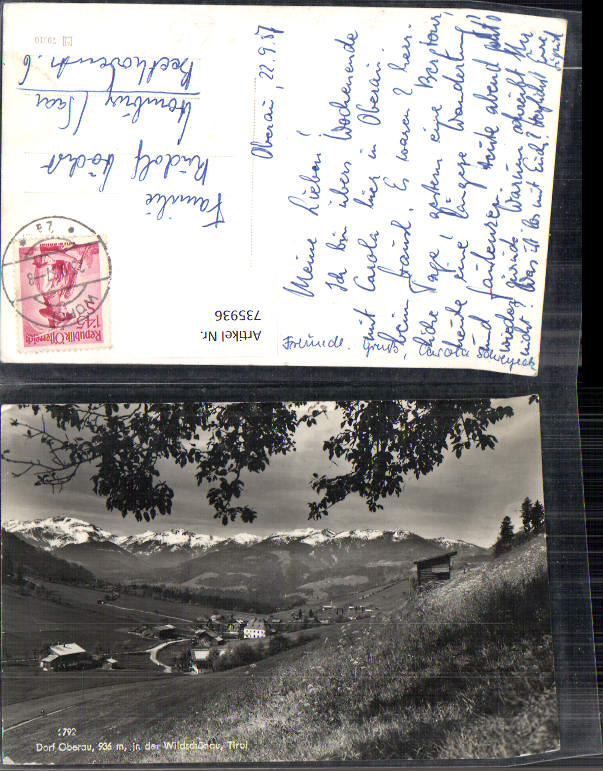 Oberau, 22.9.57
Meine Lieben!
Ich bin übers Wochenende
mit Carola hier in Oberau
beim Es waren 2 herr-
liche Tage, gestern eine Bergtour,
heute eine längere Wanderung
und Faulenzen. Heute abend
wieder zurück. Warum schreibt Ihr
nicht? Was ist los mit Euch? Herzlichst Eure
Sigrid
Freundl. Grüße, Carola
Familie
Rudolf Höchst
Homburg/Saar
Beethovenstr. 6
Republik Österreich
Artikel Nr.
735936
1792
Dorf Oberau, 936 m, in der Wildschönau, Tirol